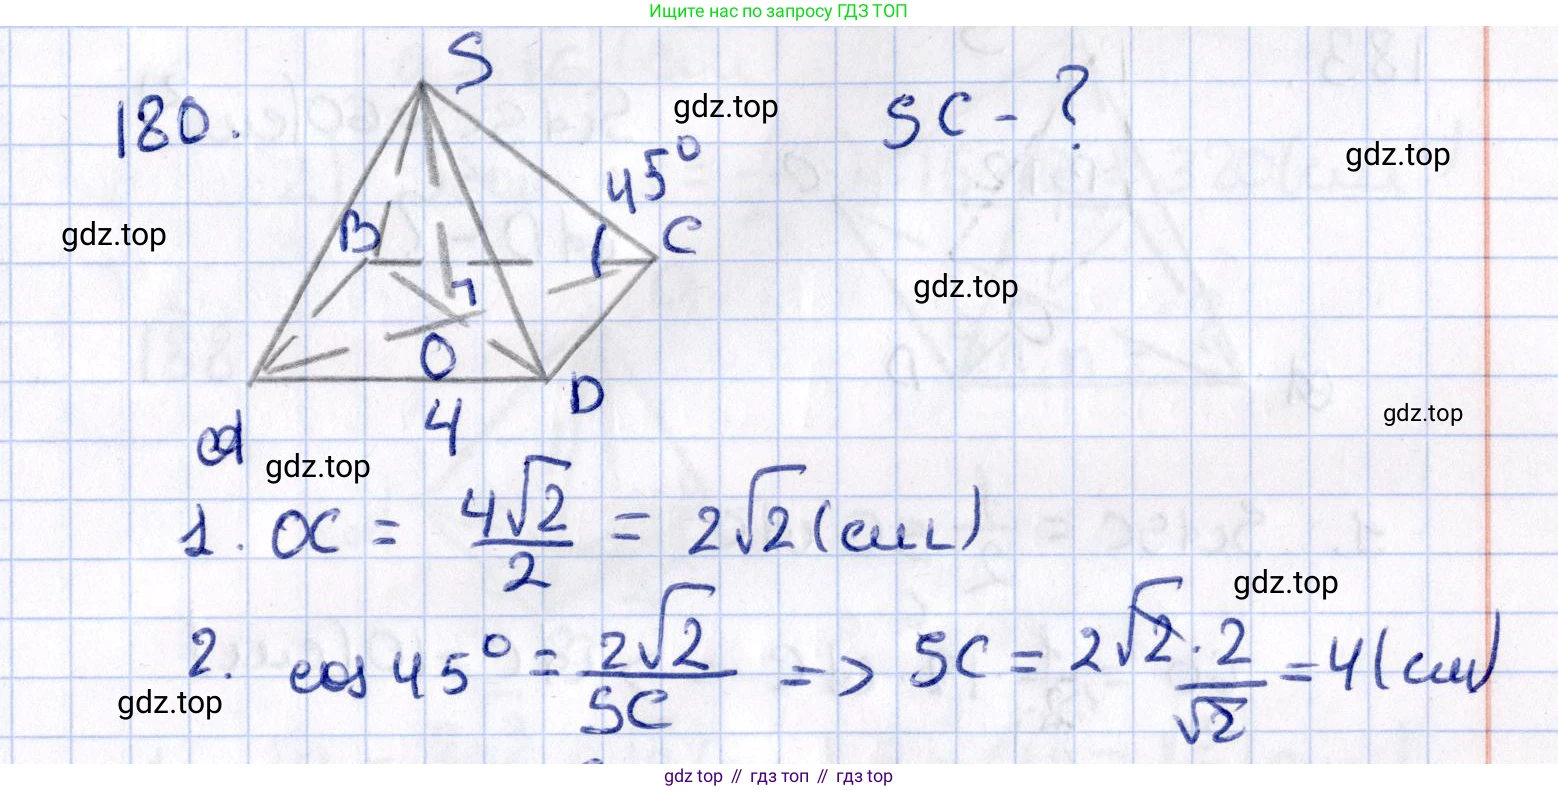 Ищите нас по запросу ГДЗ ТОП
S
180.
gdz.top
SC - ?
45°
gdz.top
gdz.top
B
C
gdz.top
O
D
4
gdz.top
A
gdz.top
1. OC = 4√2/2 = 2√2 (см)
gdz.top
2. cos 45° = 2√2/SC => SC = 2√2·2/√2 = 4 (см)
gdz.top
gdz top // гдз топ // гдз top